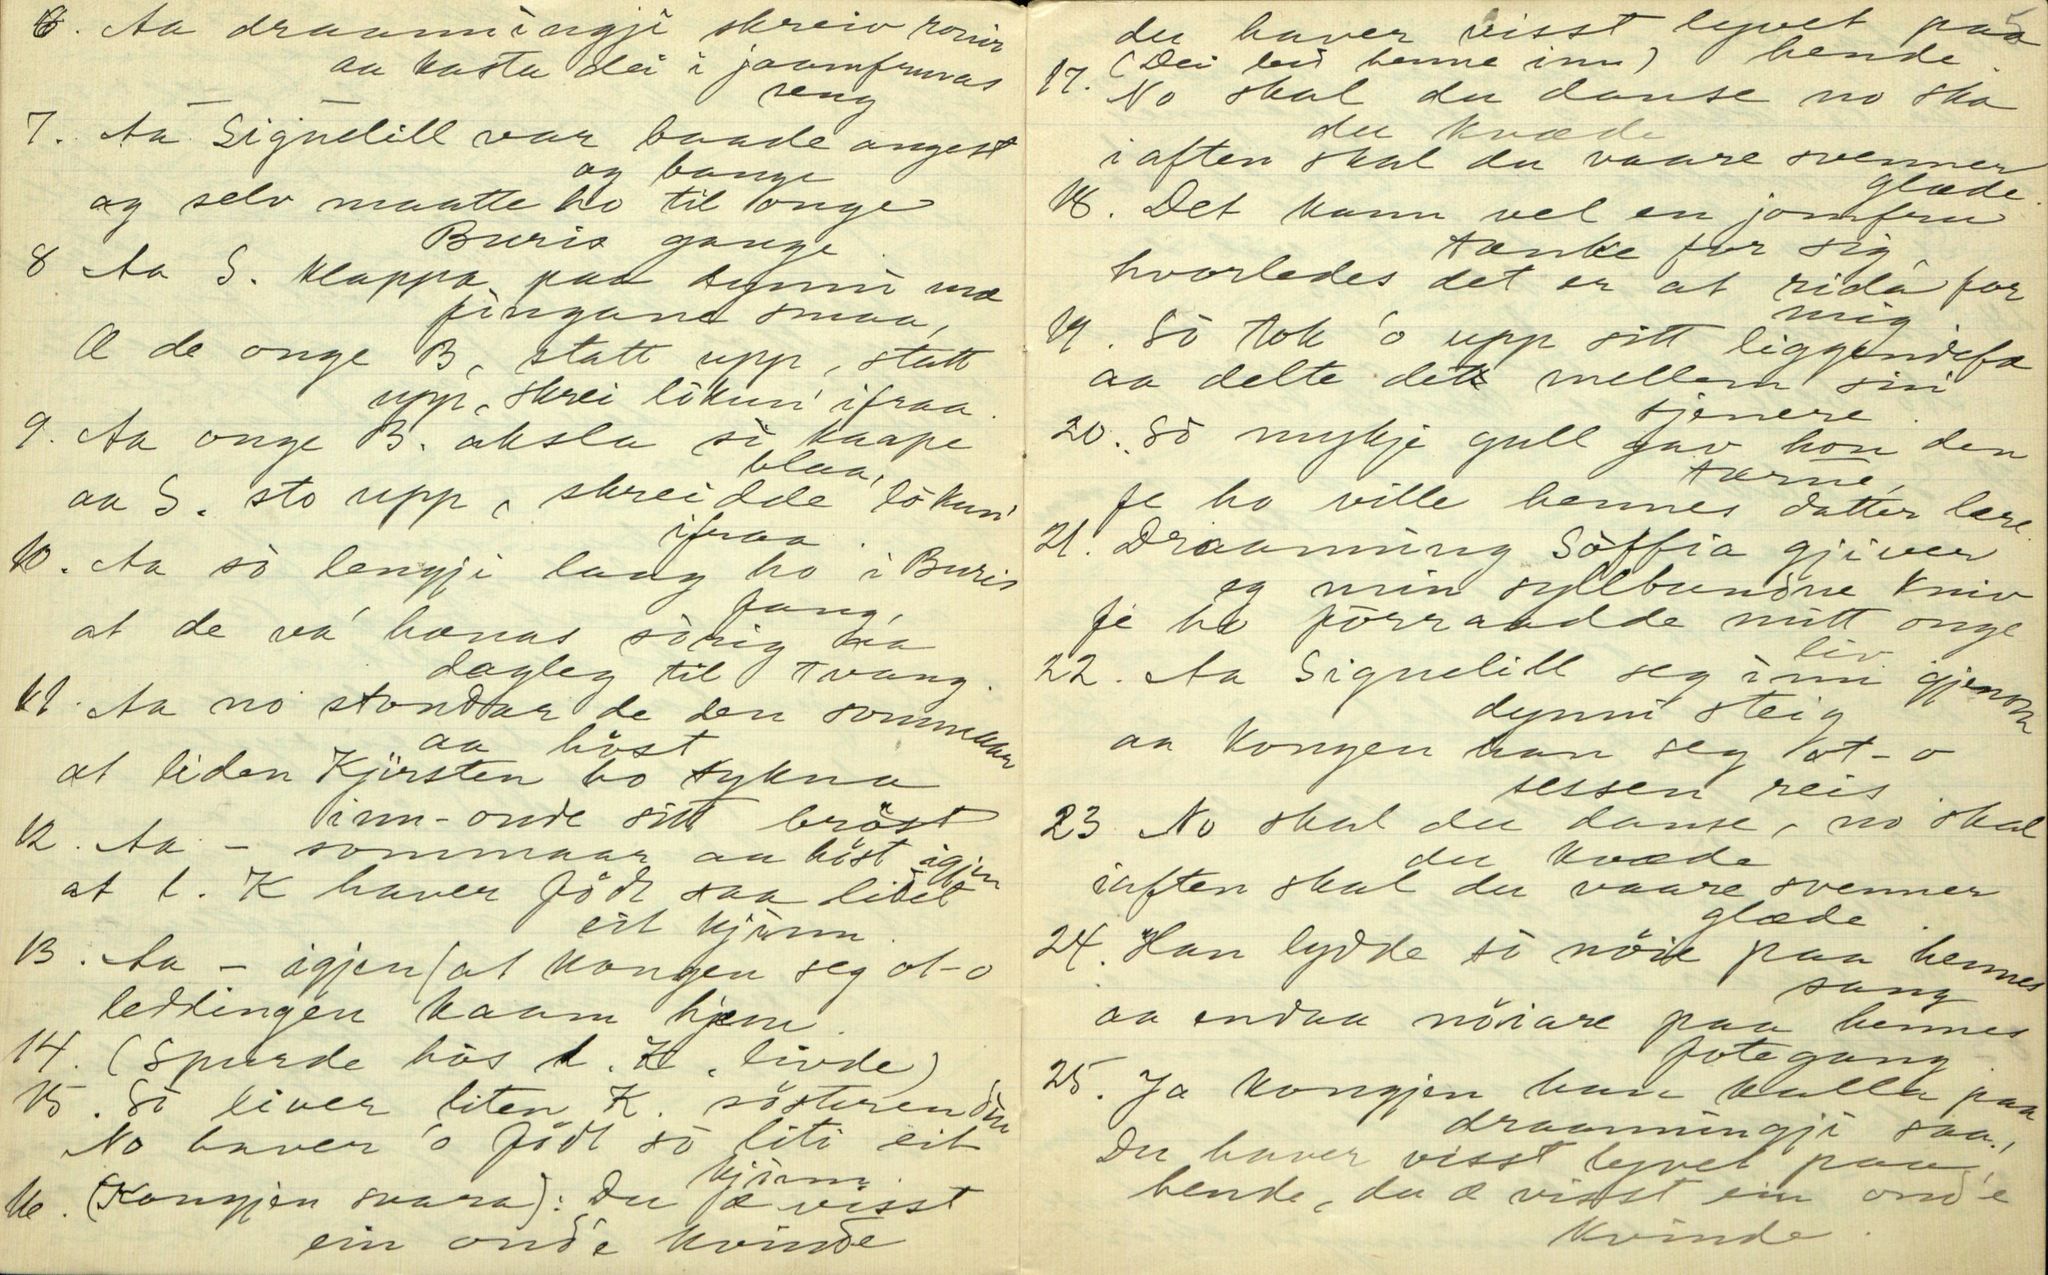 6. Aa draanningji skreiv ronir
aa kasta dei i jaamfruvas
seng
7. Aa Signelill var baade angest
og bange
og selv maatte ho til onge
Buris gange
8 Aa S. klappa paa dynni mæ
fingane smaa,
Æ de onge B, statt upp, statt
upp, skrei lokun' ifraa.
9. Aa onge B. aksla si kaape
blaa,
aa S. sto upp, skreidde lokun'
ifraa
10. Aa so lengji laag ho i Buris
fang,
at de va' hænas sorig aa
dagleg til tvang.
11. Aa no stondar de den sommaar
aa höst
at liden Kjirsten ho sykna
inn-onde sitt bröst
12. Aa - sommaar aa höst igjen
at l. K haver födt saa lidet
eit kjinn.
13. Aa - igjen (at kongen seg ot-o
leddingen kaam hjem.
14. (Spurde hos l. K. livde)
15. So liver liten K. sösteren din
No haver 'o födt so liti eit
kjinn.
16. (Kongjen svara): Du æ visst
ein ond'e kvinde
5
du haver visst lyvet paa
hende.
17. (Dei lei henne inn)
No skal du danse no ska
du kvæde
i aften skal du vaare svenner
glæde.
18. Det kann vel en jomfru
tænke for sig,
hvorledes det er at rida for
mig
19. So tok 'o upp sitt liggendefæ
aa delte dett mellem sin
tjenere.
20. So mykje gull gav hon den
tærne,
fe ho ville hennes datter lære.
21. Draanning Söffia gjiver
eg min syllbundne kniv
fe ho forraadde mitt onge
liv.
22. Aa Signelill seg inn gjenom
dynni steig
aa kongen han seg ot-o
sessen reis.
23 No skal du danse, no skal
du kvæde
iaften skal du vaare svenner
glæde.
24. Han lydde so nöie paa hennes
sang
aa endaa nöiare paa hennes
fotegang
25. Ja kongjen han kalla paa
draanningji saa,
Du haver visst lyvet paa
hende, du æ visst ein ond'e
kvinde.